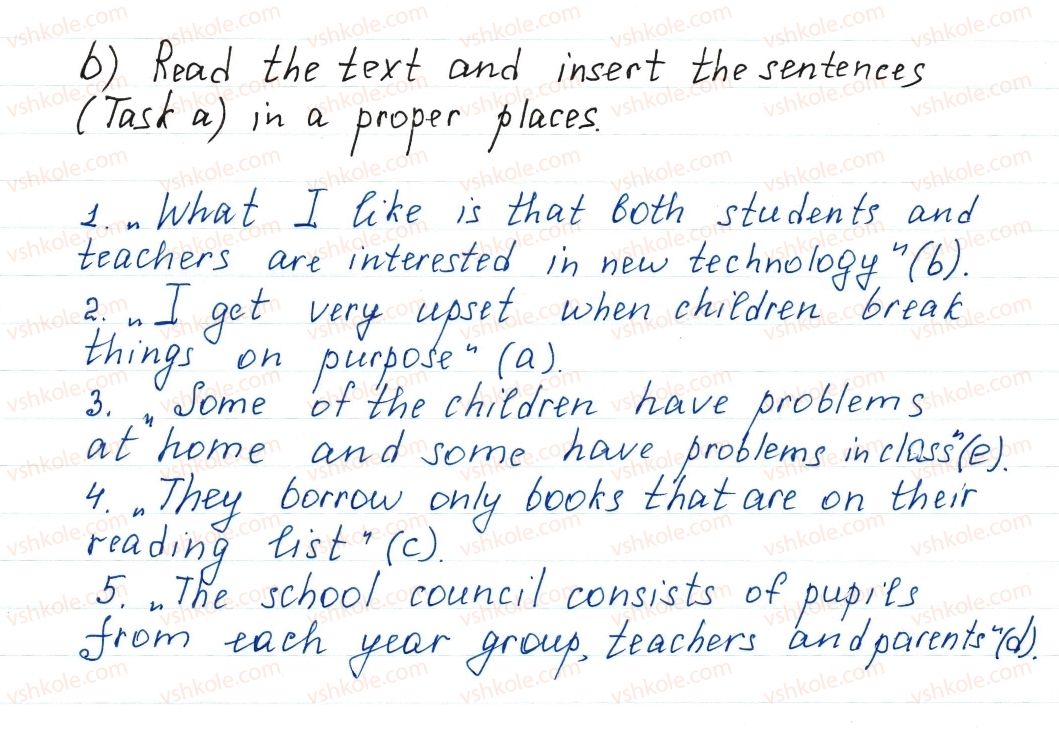 b) Read the text and insert the sentences
(Task a) in a proper places.
1. „What I like is that both students and
teachers are interested in new technology" (b).
2. „I get very upset when children break
things on purpose" (a).
3. „Some of the children have problems
at home and some have problems in class" (e).
4. „They borrow only books that are on their
reading list" (c).
5. „The school council consists of pupils
from each year group, teachers and parents" (d).